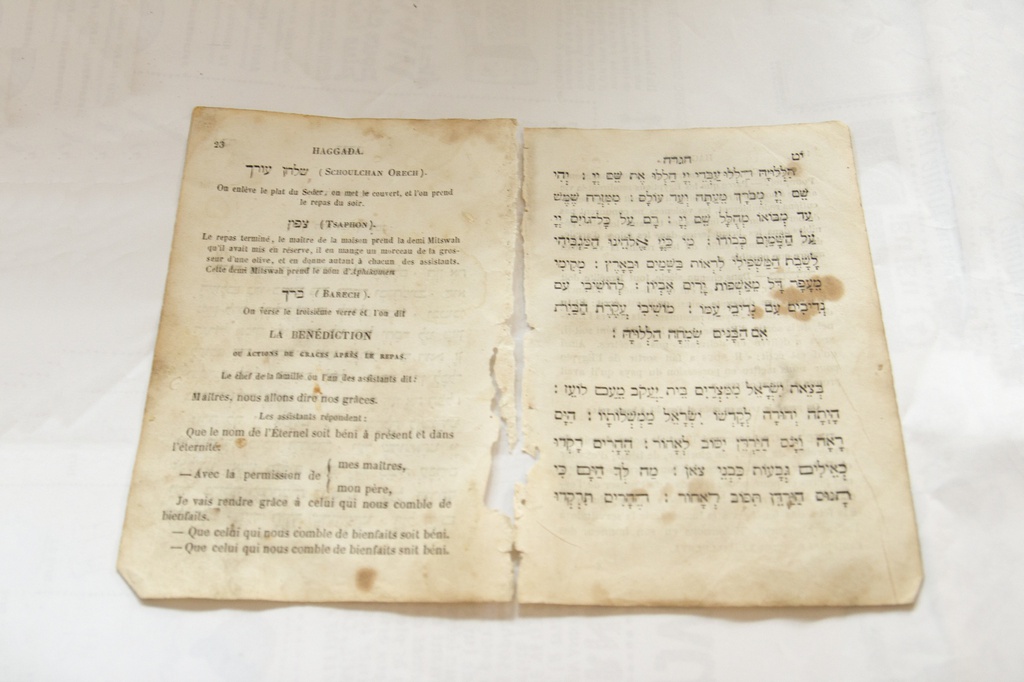 23
HAGGADA.
שלחן עורך (SCHOULCHAN ORECH).
On enlève le plat du Seder, on met le couvert, et l'on prend
le repas du soir.
צפון (TSAPHON).
Le repas terminé, le maître de la maison prend la demi Mitswah
qu'il avait mis en réserve, il en mange un morceau de la gros-
seur d'une olive, et en donne autant à chacun des assistants.
Cette demi Mitswah prend le nom d'Aphikomen
ברך (BARECH).
On verse le troisième verre et l'on dit
LA BÉNÉDICTION
OU ACTIONS DE GRACES APRÈS LE REPAS.
Le chef de la famille ou l'un des assistants dit:
Maîtres, nous allons dire nos grâces.
Les assistants répondent:
Que le nom de l'Éternel soit béni à présent et dans
l'éternité:
—Avec la permission de { mes maîtres,
mon père,
Je vais rendre grâce à celui qui nous comble de
bienfaits.
— Que celui qui nous comble de bienfaits soit béni.
— Que celui qui nous comble de bienfaits snit béni.
הגדה יט
הַלְלוּיָהּ הַלְלוּ עַבְדֵי יְיָ הַלְלוּ אֶת שֵׁם יְיָ : יְהִי
שֵׁם יְיָ מְבֹרָךְ מֵעַתָּה וְעַד עוֹלָם : מִמִּזְרַח שֶׁמֶשׁ
עַד מְבוֹאוֹ מְהֻלָּל שֵׁם יְיָ : רָם עַל כָּל־גּוֹיִם יְיָ
עַל הַשָּׁמַיִם כְּבוֹדוֹ : מִי כַּיְיָ אֱלֹהֵינוּ הַמַּגְבִּיהִי
לָשָׁבֶת הַמַּשְׁפִּילִי לִרְאוֹת בַּשָּׁמַיִם וּבָאָרֶץ : מְקִימִי
מֵעָפָר דָּל מֵאַשְׁפּוֹת יָרִים אֶבְיוֹן : לְהוֹשִׁיבִי עִם
נְדִיבִים עִם נְדִיבֵי עַמּוֹ : מוֹשִׁיבִי עֲקֶרֶת הַבַּיִת
אֵם הַבָּנִים שְׂמֵחָה הַלְלוּיָהּ :
בְּצֵאת יִשְׂרָאֵל מִמִּצְרַיִם בֵּית יַעֲקֹב מֵעַם לוֹעֵז :
הָיְתָה יְהוּדָה לְקָדְשׁוֹ יִשְׂרָאֵל מַמְשְׁלוֹתָיו : הַיָּם
רָאָה וַיָּנֹס הַיַּרְדֵּן יִסּוֹב לְאָחוֹר : הֶהָרִים רָקְדוּ
כְאֵילִים גְּבָעוֹת כִּבְנֵי צֹאן : מַה לְּךָ הַיָּם כִּי
תָנוּס הַיַּרְדֵּן תִּסּוֹב לְאָחוֹר : הֶהָרִים תִּרְקְדוּ